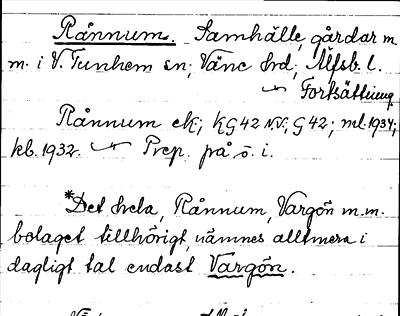 Rånnum. Samhälle, gårdar m.
m. i V. Tunhem sn, Väne hd, Älfsb. l.
Fortsättning
Rånnum ek; KG42 NV; G42; ml. 1934;
kb. 1932. Prep. på ö. i.
*Det hela, Rånnum, Vargön m.m.
bolaget tillhörigt, nämnes alltmera i
dagligt tal endast Vargön.